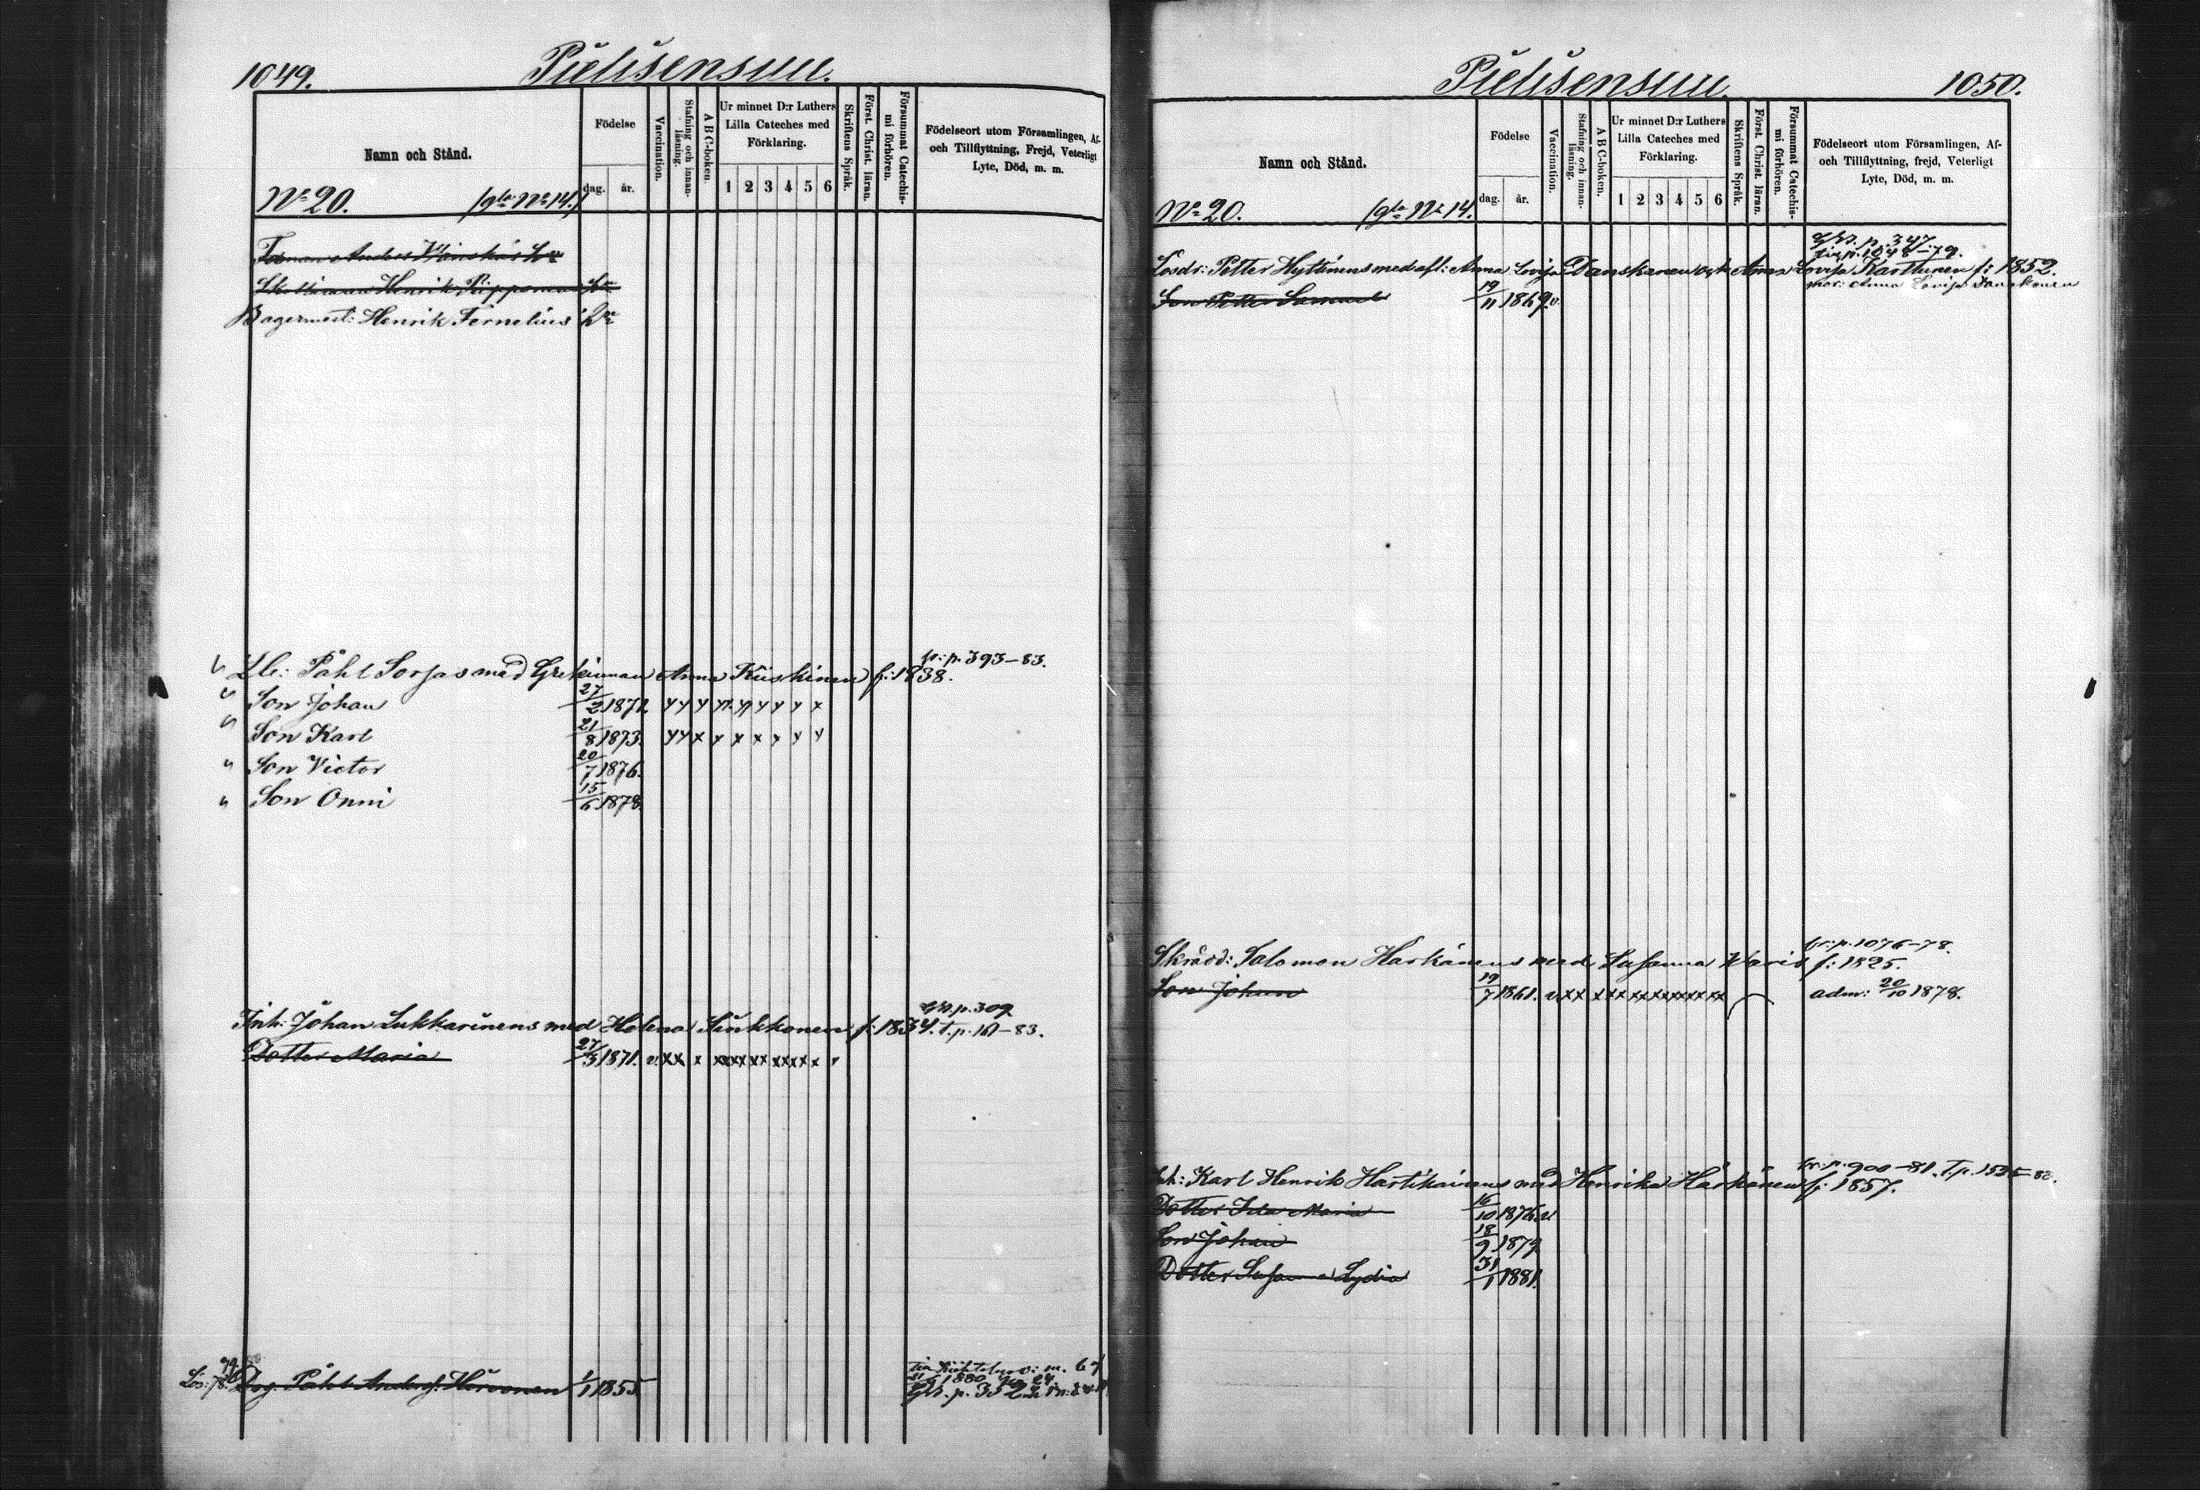 1049.
Pielisensuu.
Namn och Stånd.
Födelse
dag.
år.
Vaccination.
Stafning och innanläsning.
A B C-boken.
Ur minnet D:r Luthers
Lilla Cateches med
Förklaring.
1 2 3 4 5 6
Skriftens Språk.
Först. Christ. läran.
Försummat Catechismi förhören.
Födelseort utom Församlingen, Af-
och Tillflyttning, Frejd, Veterligt
Lyte, Död, m. m.
No 20. (gla No 14.)
Anders
Henrik
Bagermest: Henrik Fornelius
fr: p. 393-83.
Påhl Sorjas med Grekinnan Anna Kiiskinen f: 1838.
Son Johan 27/2 1872
Son Karl 21/8 1873.
Son Victor 20/7 1876.
Son Onni 15/6 1878
p. 309
Inh: Johan Lukkarinens med Helena Sinkkonen f: 1834. T. p. 161-83.
Dotter Maria 27/3 1871. v.
Påhl Andersf. Hirvonen 1/1 1855
1050.
Pielisensuu.
Namn och Stånd.
Födelse
dag.
år.
Vaccination.
Stafning och innanläsning.
A B C-boken.
Ur minnet D:r Luthers
Lilla Cateches med
Förklaring.
1 2 3 4 5 6
Skriftens Språk.
Först. Christ. läran.
Försummat Catechismi förhören.
Födelseort utom Församlingen, Af-
och Tillflyttning, frejd, Veterligt
Lyte, Död, m. m.
No 20. (gla No 14.
p. 347.
p. 1048-79.
Losdr: Petter Hyttinens med afl: Anna Lovisa Danskanen och Anna Lovisa Karttunen f: 1852.
mor: Anna Lovisa Danskanen
Son Petter Samuel 19/11 1869 v.
fr: p. 1076-78.
Skrädd: Salomon Harkänens med Susanna Waris f: 1825.
Son Johan 19/7 1861. v adm: 20/10 1878.
fr: p. 900-81. T. p.
Karl Henrik Hartikainens med Henrika Härkänen f: 1857.
Dotter Ida Maria 16/10 1876 v
Son Johan 18/9 1879
Dotter Susanna Lydia 31/1 1881.